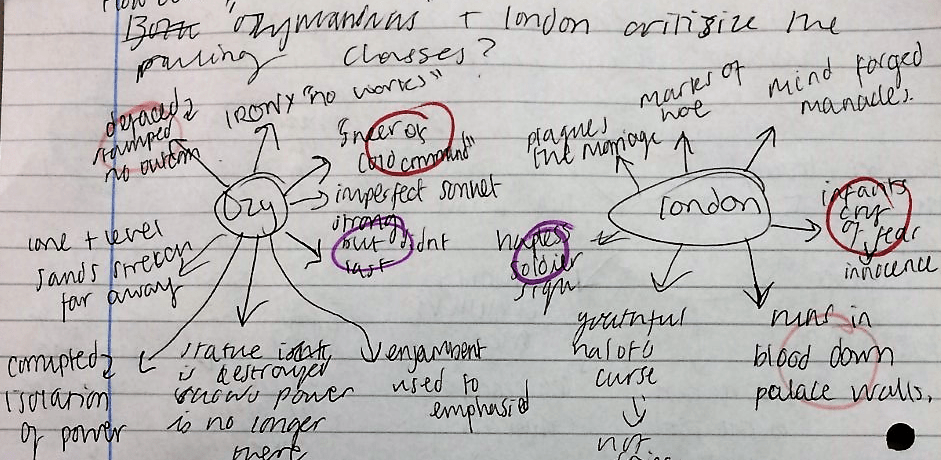 "Ozymandias + london critisize the
ruling classes?
defaced &
stamped
no
IRONY "no works"
"sneer of
cold command"
imperfect sonnet
strong
but didnt
last
Ozy
lone + level
sands stretch
far away
corrupted &
isolation
of power
statue
is destroyed
shows power
is no longer
there
enjambent
used to
emphasise
plagues
the marriage
marks of
woe
mind forged
manacles.
london
infants
cry
of fear
innocence
hapless
soldier
sigh
youthful
harlots
curse
runs in
blood down
palace walls.